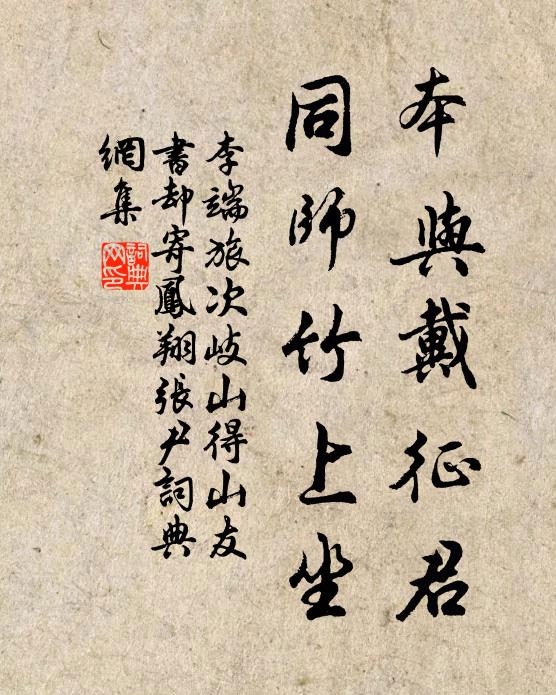 本與戴征君
同師竹上坐
李端旅次岐山得山友
書却寄鳳翔張尹詞典
網集
詞典
网印